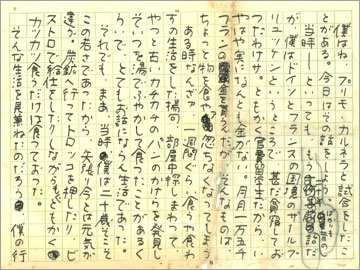 僕はね、プリモ・カルネラと試合をしたこ
とがある。今日はその話をしようか。
当時——といっても、もう
が、僕はドイツとフランスの国境のザールブ
リュッケンというところで、甚だ窮宿してお
ったわけサ。ともかく官費留学生だから、い
やは実になんとも金がない。月月一万五千
フランの金を貰えたんだが、そんなものは
ちょっと物を食や忽ちなくなってしまう。
ある時なんざァ、一週間ぐらい食うや食わ
ずの生活をした揚句、部屋中探しまわって、
やっと古いカチカチのパンのかけらを発見し、
そいつを湯でふやかして食ったことがあるく
らいで、とてもお話にならん生活であった。
それでも、まあ、当時僕は二十歳そこそ
この若さであったから、矢張り今とは元気が
違う。炭鉱へ行ってトロッコを押したり、ビ
ストロで給仕をしたりしながら、ともかく
カツカツ食うだけは食っておった。
そんな生活を見兼ねたのだろう、僕の行